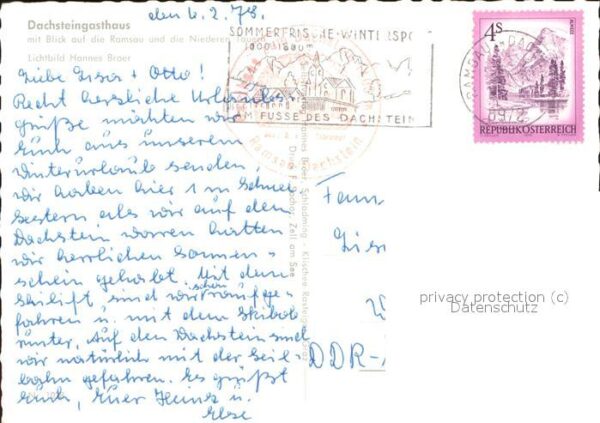 Dachsteingasthaus
mit Blick auf die Ramsau und die Niederen Tauern
Lichtbild Hannes Broer
den 6.2.78.
Liebe + Otto!
Recht herzliche Urlaubs-
grüße möchten wir
Euch aus unserem
Winterurlaub senden,
wir haben hier 1 m Schnee
Gestern als wir auf dem
Dachstein waren hatten
wir herrlichen Sonnen-
schein gehabt. Mit dem
Skilift sind wir schon rauf ge-
fahren u. mit dem Skibob
runter. Auf den Dachstein sind
wir natürlich mit der Seil-
bahn gefahren. Es grüßt
Euch, Euer Heinz u.
Else
SOMMERFRISCHE-WINTERSPO
1000-1800 m
AM FUSSE DES DACHSTEIN
Ramsau-Dachstein
4S
REPUBLIK ÖSTERREICH
RAMSAU DAC
8972
Hannes Broer, Schladming - Klischee
Druck Zell am See
Fam
DDR-
privacy protection (c)
Datenschutz